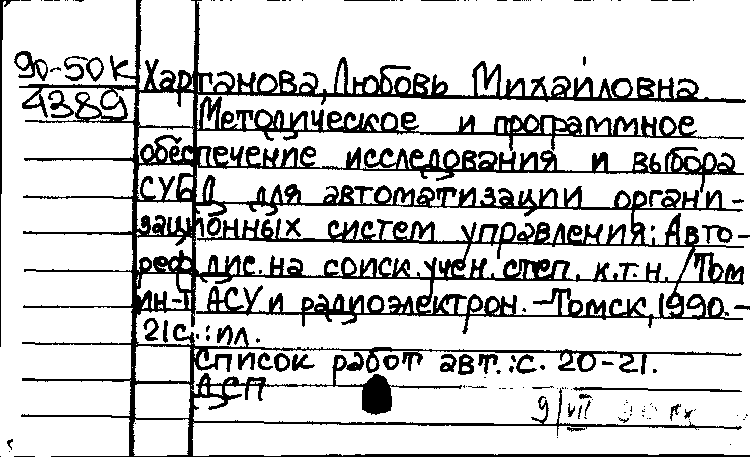 90-50К
4389
Хартанова, Любовь Михайловна.
Методическое и программное
обеспечение исследования и выбора
СУБД для автоматизации органи-
зационных систем управления: Авто-
реф. дис. на соиск. учен. степ. к.т.н. / Том
ин-т АСУ и радиоэлектрон. – Томск, 1990. –
21с.: ил.
Список работ авт.: с. 20-21.
ДСП
9/VII